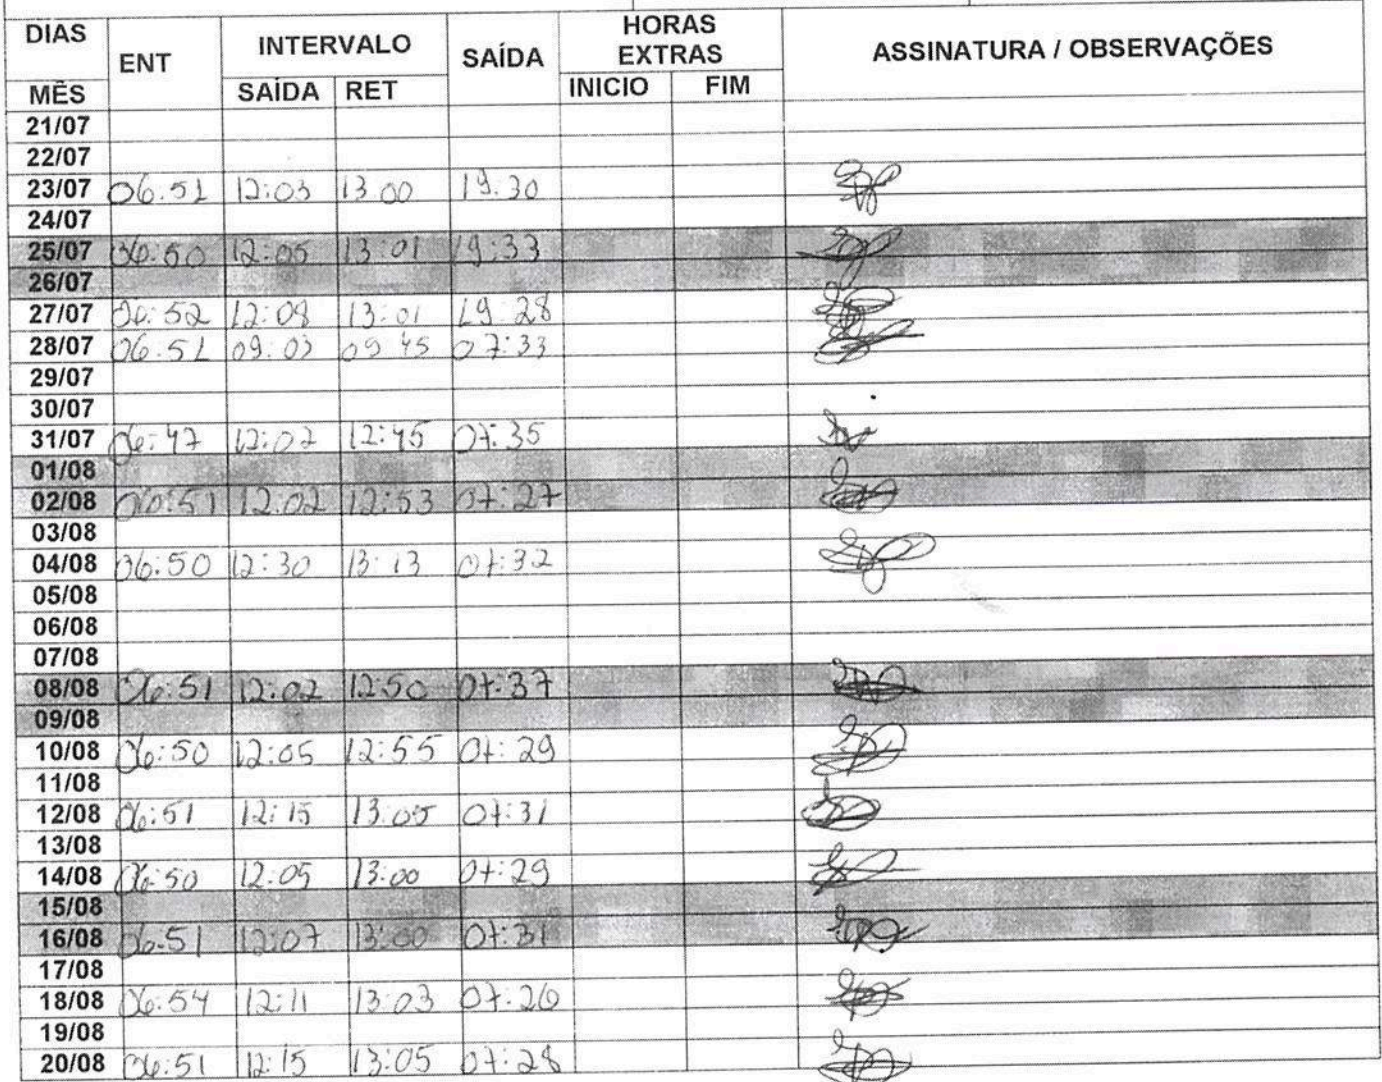 DIAS ENT INTERVALO SAÍDA HORAS EXTRAS ASSINATURA / OBSERVAÇÕES
MÊS SAÍDA RET INICIO FIM
21/07
22/07
23/07 06.51 12:03 13.00 19.30
24/07
25/07 06:50 12:05 13:01 19:33
26/07
27/07 06:52 12:08 13:01 19:28
28/07 06.51 09:03 09 45 07:33
29/07
30/07
31/07 06:47 12:02 12:45 07:35
01/08
02/08 06:51 12:02 12:53 07:27
03/08
04/08 06:50 12:30 13:13 07:32
05/08
06/08
07/08
08/08 06:51 12:02 12:50 07:37
09/08
10/08 06:50 12:05 12:55 07:29
11/08
12/08 06:51 12:15 13:05 07:31
13/08
14/08 06:50 12:05 13:00 07:29
15/08
16/08 06.51 12:07 13:00 07:31
17/08
18/08 06:54 12:11 13:03 07:26
19/08
20/08 06:51 12:15 13:05 07:28